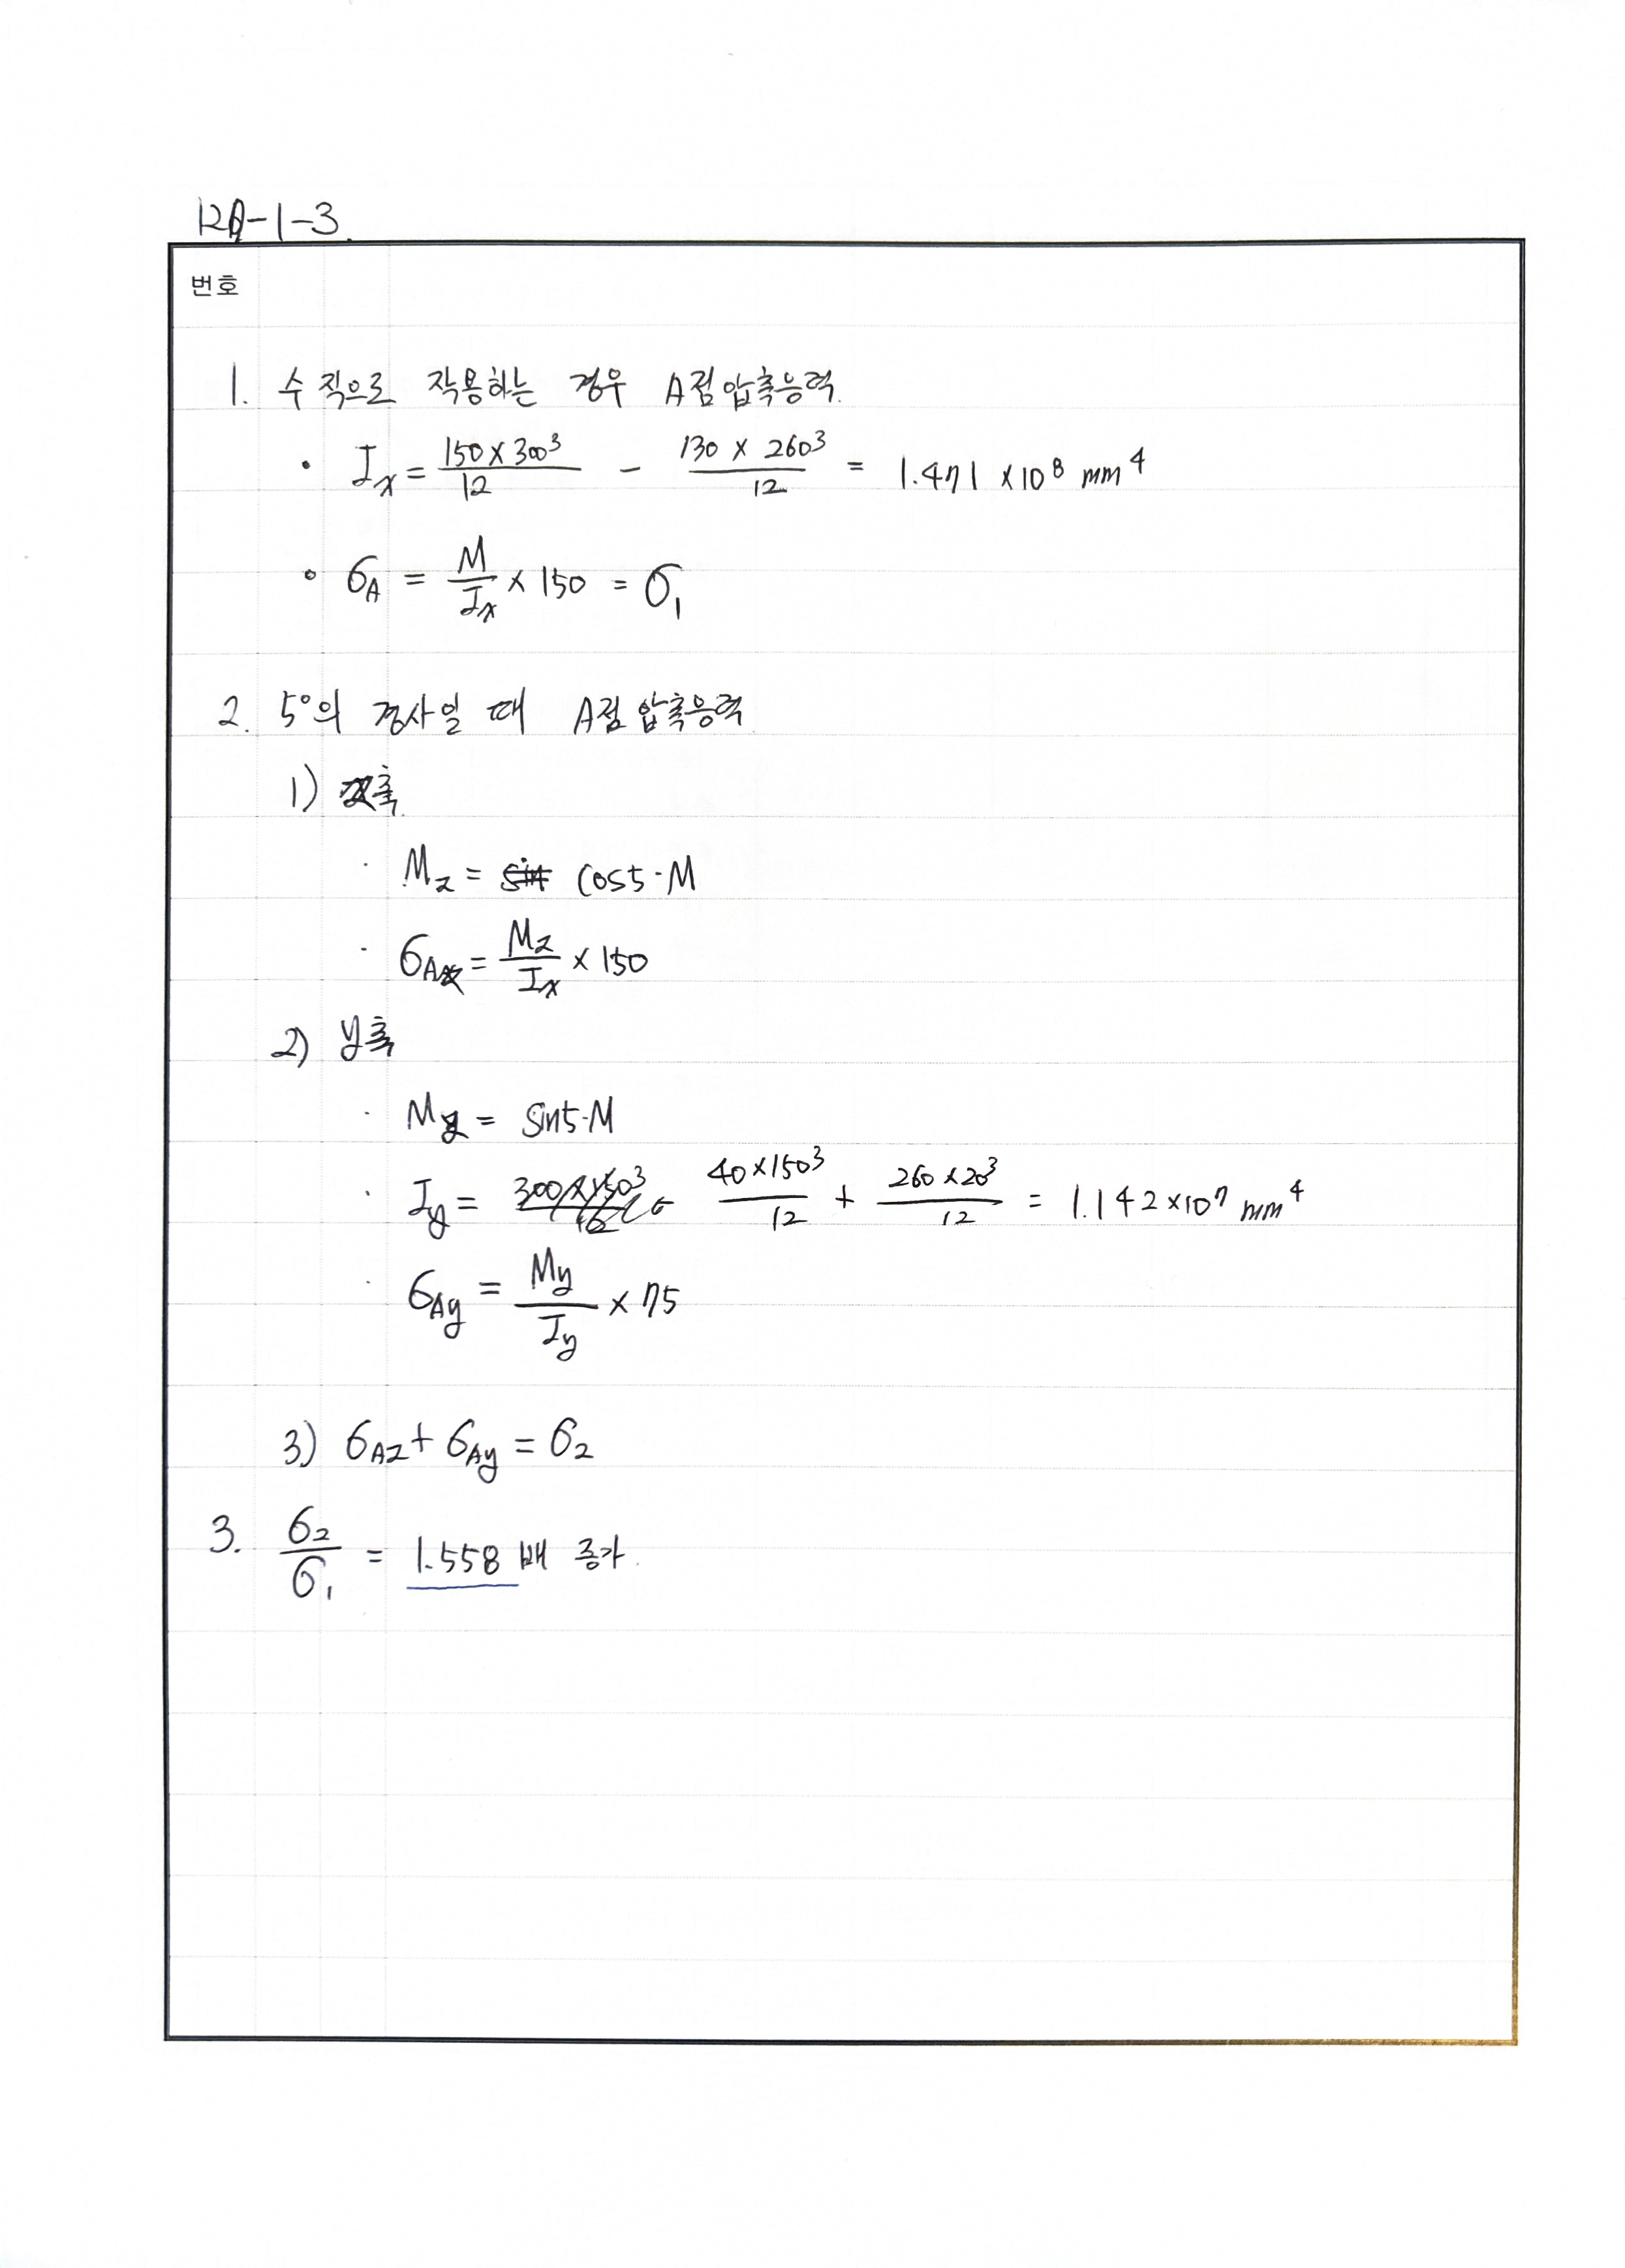 120-1-3.
번호
1. 수직으로 작용하는 경우 A점 압축응력.
• Ix = 150×300³/12 - 130×260³/12 = 1.471 ×10⁸ mm⁴
• σA = M/Ix × 150 = σ₁
2. 5°의 경사일 때 A점 압축응력
1) z축
· Mz = cos5·M
· σAz = Mz/Ix × 150
2) y축
· My = sin5·M
· Iy = 40×150³/12 + 260×20³/12 = 1.142×10⁷ mm⁴
· σAy = My/Iy × 75
3) σAz + σAy = σ₂
3. σ₂/σ₁ = 1.558 배 증가.